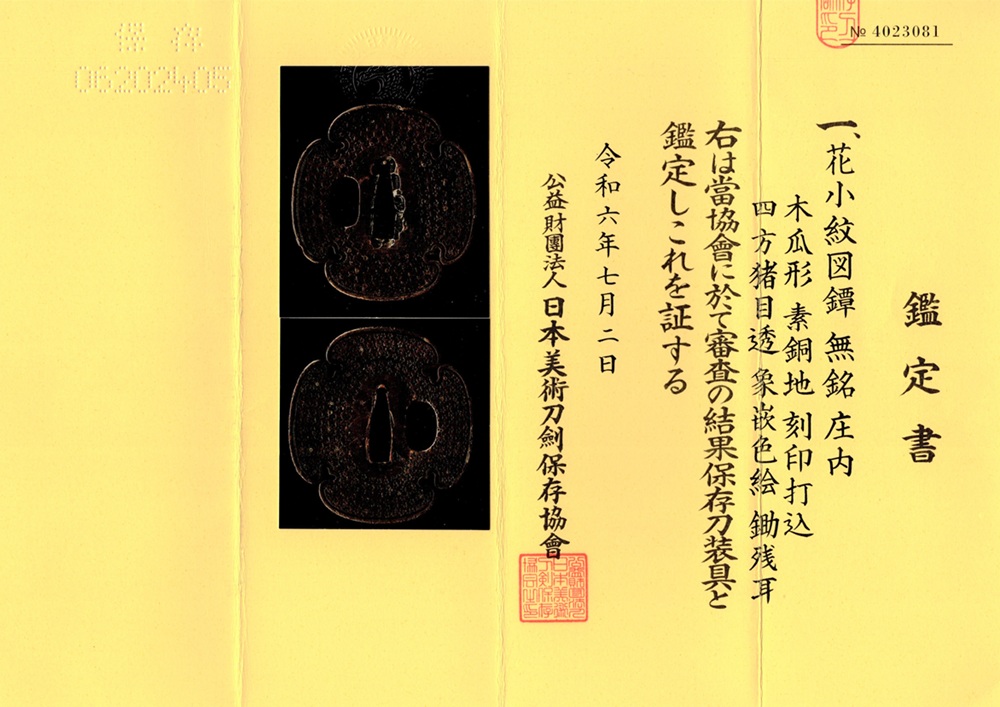 № 4023081
鑑定書
一、花小紋図鐔 無銘 庄内
木瓜形 素銅地 刻印打込
四方猪目透 象嵌色絵 鋤残耳
右は當協會に於て審査の結果保存刀装具と
鑑定しこれを証する
令和六年七月二日
公益財團法人 日本美術刀劍保存協會
保存
06202405